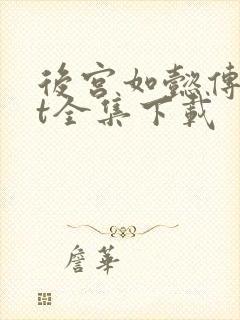 後宮如懿傳
t全集下載
詹華